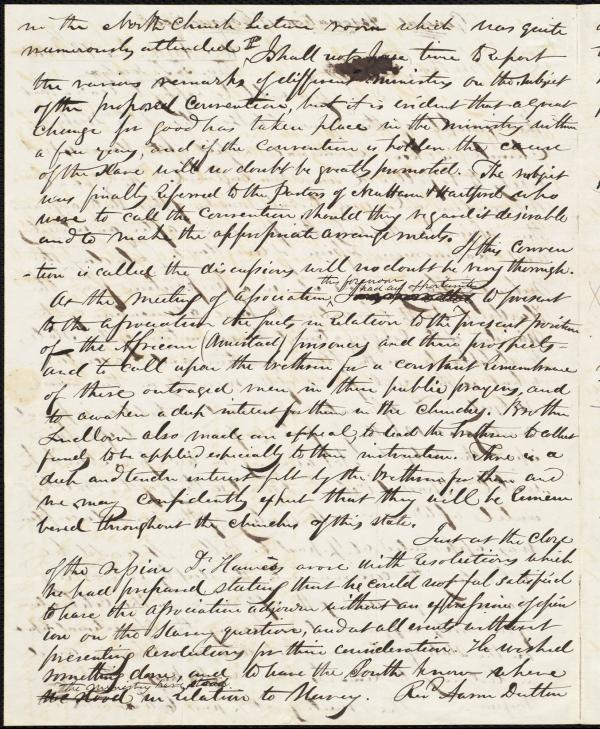 in the North Church Lecture room which was quite
numerously attended. I shall not have time to report
the various remarks of different ministers on the subject
of the proposed convention, but it is evident that a great
change for good has taken place in the ministry within
a few years, and if the Convention is holden the cause
of the Slave will no doubt be greatly promoted. The subject
was finally referred to the Pastors of New Haven & Hartford who
were to call the Convention should they regard it desirable
and to make the appropriate arrangements. If this Conven
-tion is called the discussions will no doubt be very thorough.
At the meeting of Association, this forenoon I had an opportunity to present
to the association the facts in relation to the present position
of the African (Amistad) prisoners and their prospects -
and to call upon the brethren for a constant remembrance
of these outraged men in their public prayers, and
to awaken a deep interest for them in the churches. Brother
Ludlow also made an appeal to lead the brethren to collect
funds to be applied especially to their instruction. There is a
deep and tender interest felt by the brethren for them and
we may confidently expect that they will be remem
bered throughout the churches of this state.
Just at the close
of the session Dr. Hawes arose with resolutions which
he had prepared stating that he could not feel satisfied
to have the association adjourn without an expression of opin
ion on the slavery question, and at all events without
presenting resolutions for their consideration. He wished
something done, and to have the South know where
the ministry here stood in relation to slavery. Rev. Aaron Dutton